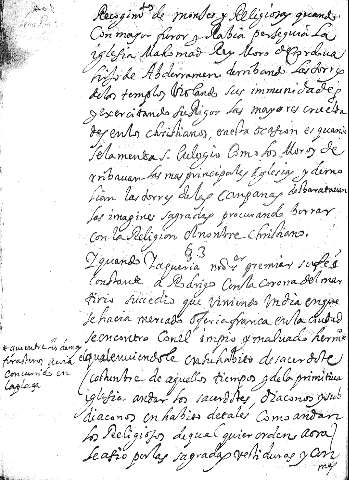 Recogim.tos de monjes y Religiosas quando
con mayor furor y Rabia perseguia la
iglesia Mahomad Rey Moro de Cordova
hijo de Abderramen derribando las torres
de los templos violando sus inmunidades
y exercitando su Rigor las mayores cruelda
des en los christianos, en esta ocasion es quando
se lamenta S. Eulogio como los Moros de
rribavan las mas principales Iglesias y demo
lian las torres de las campanas desbaratavan
las imagines sagradas procurando borrar
con la Religion el nombre christiano.
§. 3
Y quando ya queria n.ro s.or premiar su fee
constante a Rodrigo con la corona del mar
tirio sucedio que viniendo un dia en que
se hacia mercado o feria franca en la ciudad
se encontro con el impio y malvado herm.o
el qual viendole en su habito de sacerdote
costumbre de aquellos tiempos y de la primitiva
iglesia andar los sacerdotes, diaconos y sub
diaconos en habito de tales como andan
los Religiosos de qualquier orden aora
se asio por las sagradas vestiduras y con
concurria en
la plaza